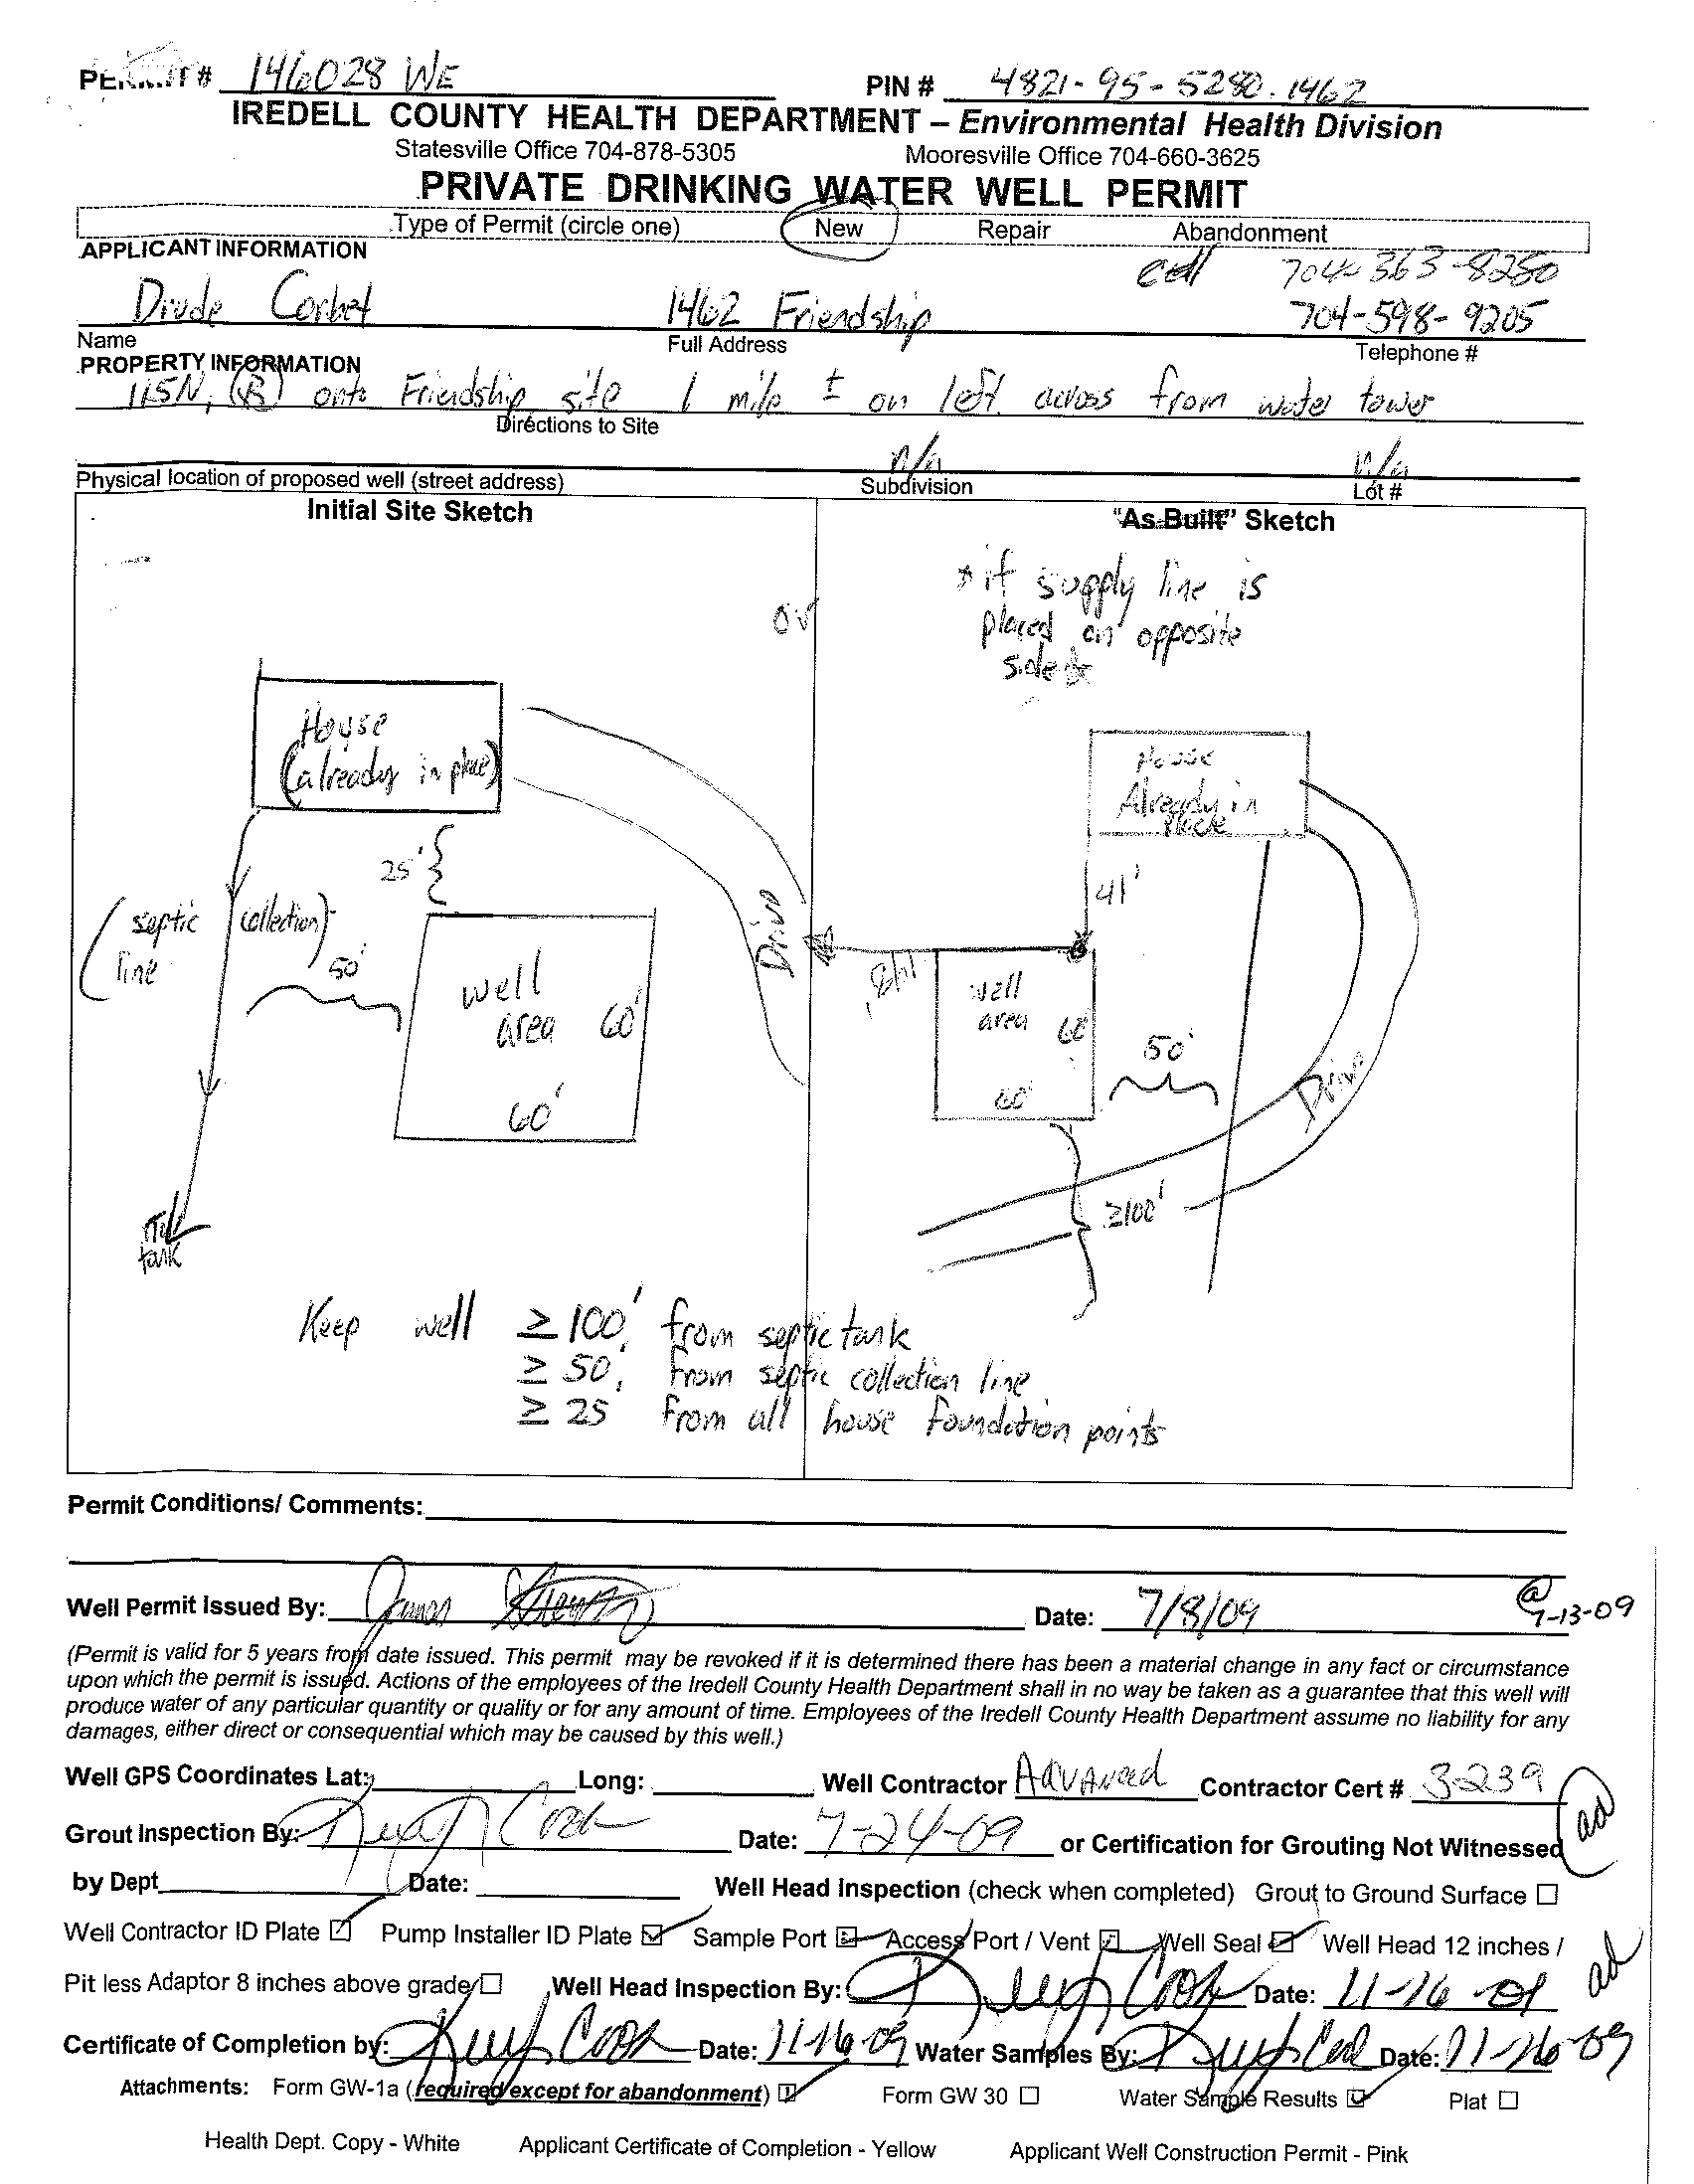 PERMIT # 146028 WE PIN # 4821-95-5280.1462
IREDELL COUNTY HEALTH DEPARTMENT – Environmental Health Division
Statesville Office 704-878-5305 Mooresville Office 704-660-3625
PRIVATE DRINKING WATER WELL PERMIT
Type of Permit (circle one) New Repair Abandonment
APPLICANT INFORMATION
cell 704-363-8250
Drude Corbet 1462 Friendship 704-598-9205
Name Full Address Telephone #
PROPERTY INFORMATION
115N, (R) onto Friendship site 1 mile ± on left across from water tower
Directions to Site
n/a n/a
Physical location of proposed well (street address) Subdivision Lot #
Initial Site Sketch "As-Built" Sketch
* if supply line is
or placed on opposite
side *
House
(already in place)
House
Already in
Place
25'
41'
(septic collection)
line
50'
Drive
well
area 60'
60'
well
area 60'
60'
50'
Drive
≥100'
tank
Keep well ≥ 100' from septic tank
≥ 50' from septic collection line
≥ 25' from all house foundation points
Permit Conditions/ Comments:
Well Permit Issued By: James Date: 7/8/09 @ 7-13-09
(Permit is valid for 5 years from date issued. This permit may be revoked if it is determined there has been a material change in any fact or circumstance
upon which the permit is issued. Actions of the employees of the Iredell County Health Department shall in no way be taken as a guarantee that this well will
produce water of any particular quantity or quality or for any amount of time. Employees of the Iredell County Health Department assume no liability for any
damages, either direct or consequential which may be caused by this well.)
Well GPS Coordinates Lat: Long: Well Contractor Advanced Contractor Cert # 3239
Grout Inspection By: Cook Date: 7-24-09 or Certification for Grouting Not Witnessed ad
by Dept Date: Well Head Inspection (check when completed) Grout to Ground Surface ☐
Well Contractor ID Plate ☑ Pump Installer ID Plate ☑ Sample Port ☑ Access Port / Vent ☑ Well Seal ☑ Well Head 12 inches /
Pit less Adaptor 8 inches above grade ☐ Well Head Inspection By: Cook Date: 11-16-09 ad
Certificate of Completion by: Cook Date: 11-16-09 Water Samples By: Cook Date: 11-16-09
Attachments: Form GW-1a (required except for abandonment) ☑ Form GW 30 ☐ Water Sample Results ☑ Plat ☐
Health Dept. Copy - White Applicant Certificate of Completion - Yellow Applicant Well Construction Permit - Pink